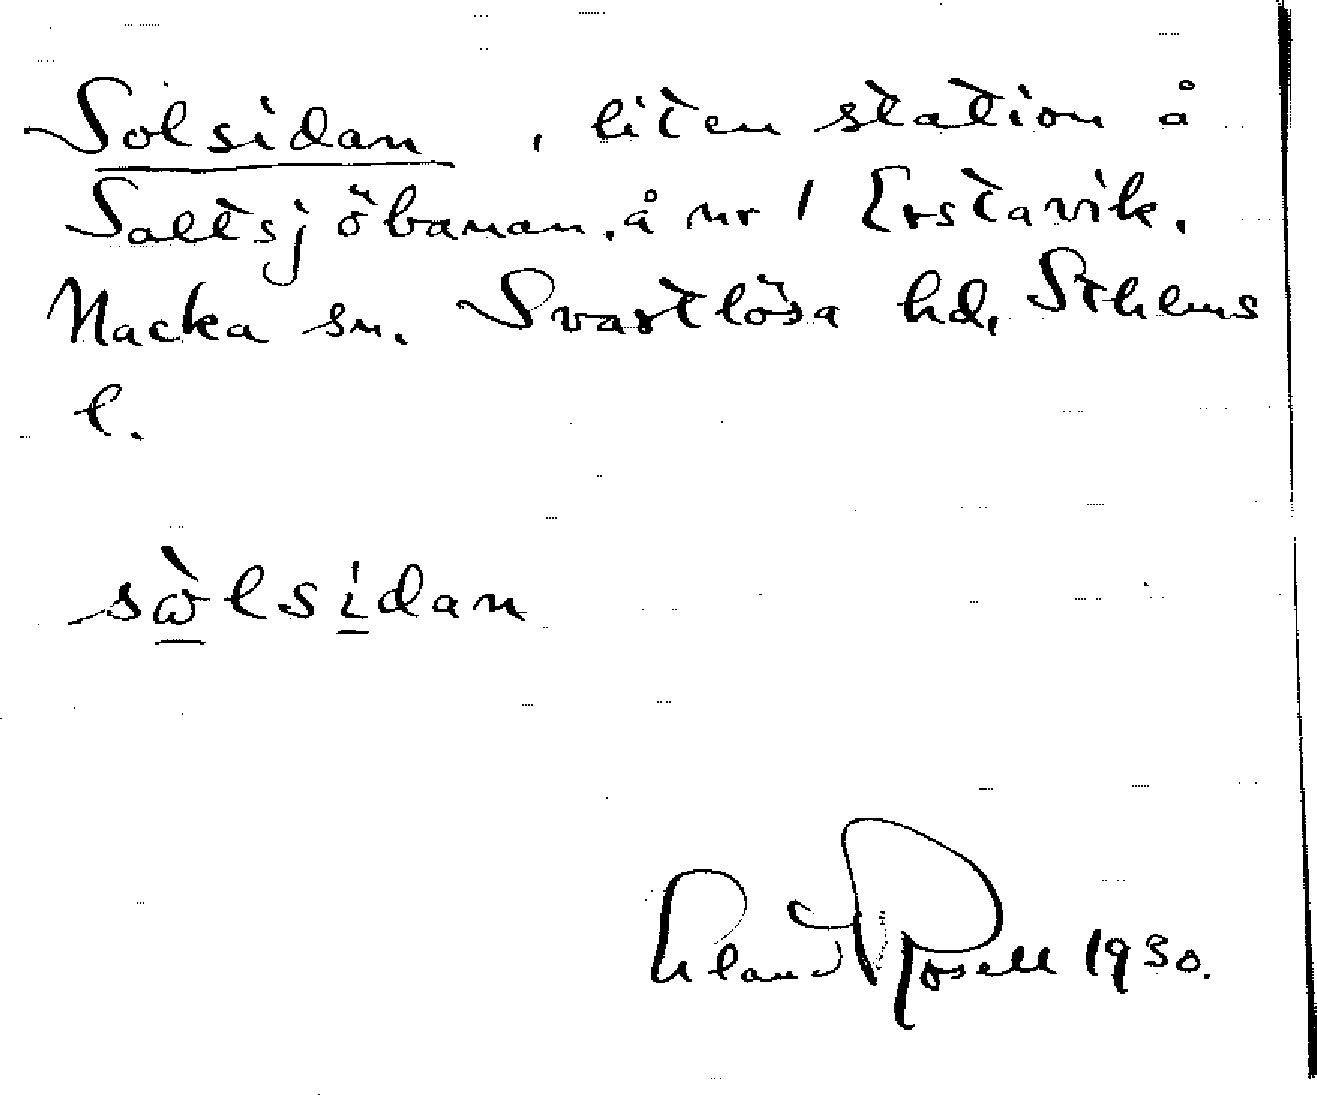 Solsidan, liten station å
Saltsjöbanan, å nr 1 Erstavik.
Nacka sn. Svartlösa hd, Sthlms
l.
sὼlsídan
Erland Rosell 1930.